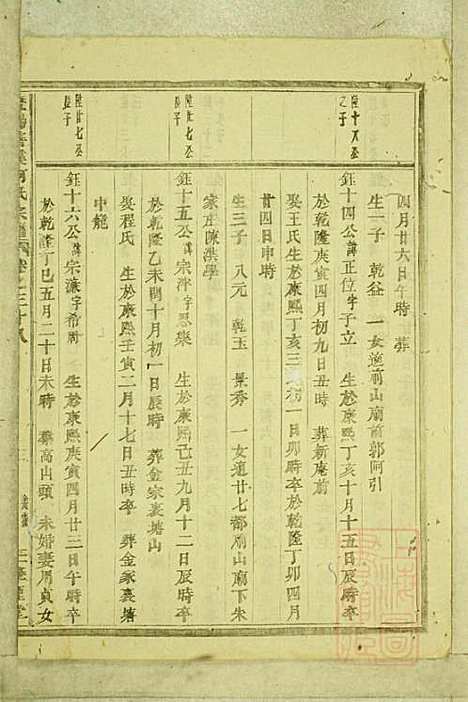 四月廿六日午時 葬
生一子 乾益 一女適前山廟前郭阿引
陸十八公之子
鈺十四公諱正位字子立 生於康熙丁亥十月十五日辰時卒
於乾隆庚寅四月初九日丑時 葬新庵前
娶王氏生於康熙丁亥三 初一日卯時卒於乾隆丁卯四月
廿四日申時
生三子 八元 乾玉 景秀 一女適廿七都廟山廟下朱
家 陳洪學
陸廿七公 子
鈺十五公諱宗泮字思樂 生於康熙己丑九月十二日辰時卒
於乾隆乙未閏十月初一日辰時 葬金家裏塘山
娶程氏 生於康熙壬寅二月十七日丑時卒 葬金家裏塘
中龍
陸廿七公 子
鈺十六公諱宗濂字希周 生於康熙庚寅四月廿三日午時卒
於乾隆丁巳五月二十日未時 葬高山頭 未婚妻周貞女
氏宗譜 卷之三十八